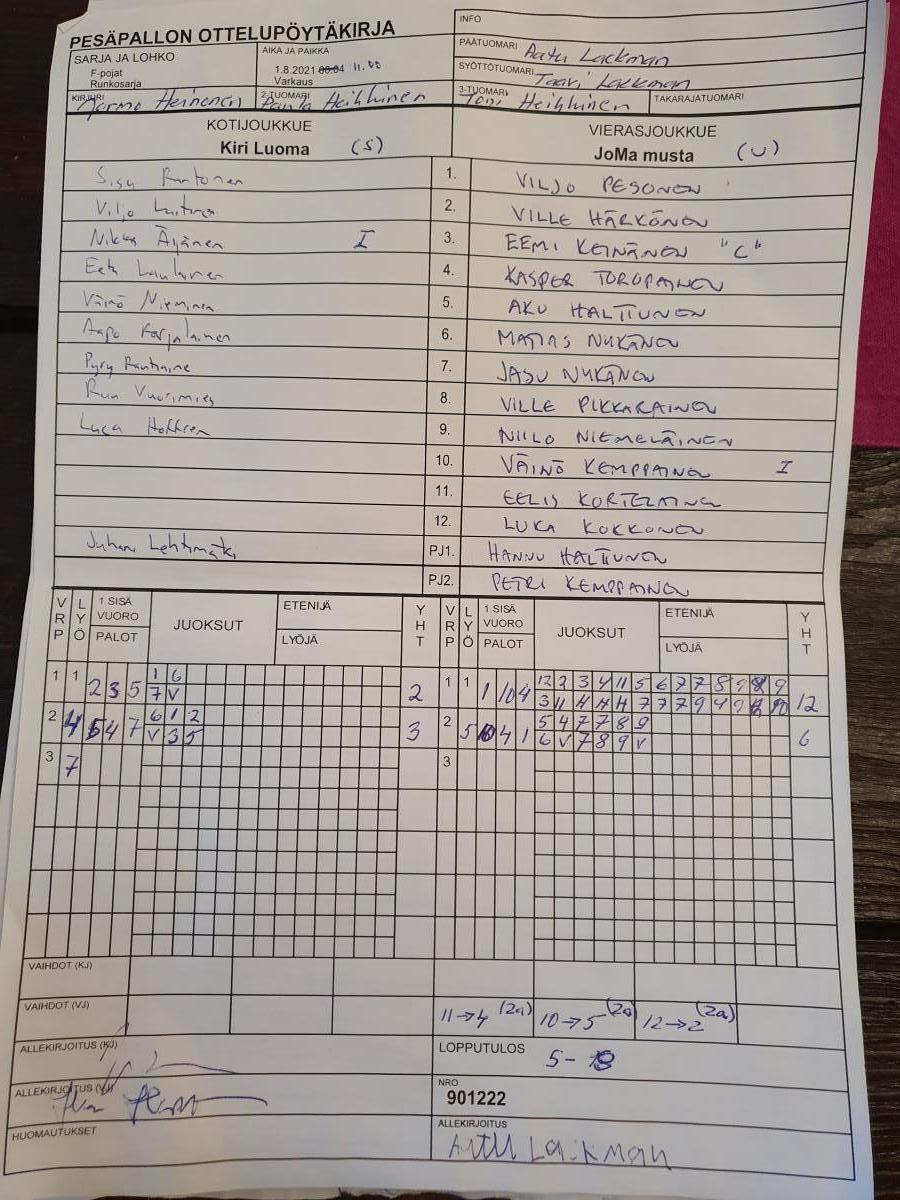 PESÄPALLON OTTELUPÖYTÄKIRJA
INFO
SARJA JA LOHKO
F-pojat
Runkosarja
AIKA JA PAIKKA
1.8.2021 11.00
Varkaus
PÄÄTUOMARI Aatu Lackman
SYÖTTÖTUOMARI Taavi Lackman
KIRJURI Jarmo Heinonen
2-TUOMARI Paula Heikkinen
3-TUOMARI Toni Heikkinen
TAKARAJATUOMARI
KOTIJOUKKUE
Kiri Luoma (S)
VIERASJOUKKUE
JoMa musta (U)
Sisu Rantonen 1. VILJO PESONEN
Viljo 2. VILLE HÄRKÖNEN
Niklas Äijänen I 3. EEMI KEINÄNEN "C"
Eetu Laulainen 4. KASPER TORUPAINEN
Väinö Nieminen 5. AKU HALTTUNEN
Aapo Karjalainen 6. MATIAS NYKÄNEN
Pyry 7. JASU NYKÄNEN
Vuorimies 8. VILLE PIKKARAINEN
Luca Hoffren 9. NIILO NIEMELÄINEN
10. VÄINÖ KEMPPAINEN I
11. EELIS KORTELAINEN
12. LUKA KOKKONEN
Juhani Lehtimäki PJ1. HANNU HALTTUNEN
PJ2. PETRI KEMPPAINEN
VRP LYÖ 1.SISÄ VUORO PALOT JUOKSUT ETENIJÄ LYÖJÄ YHT VRP LYÖ 1.SISÄ VUORO PALOT JUOKSUT ETENIJÄ LYÖJÄ YHT
1 1 2 3 5 1 6 2 1 1 1 10 4 12 2 3 4 11 5 6 7 7 8 9 9 12
7 V 3 11 4 4 4 7 7 7 9 9 9 10
2 4 5 4 7 6 1 2 3 2 5 4 1 5 4 7 7 8 9 6
V 3 5 6 V 7 8 9 V
3 7 3
VAIHDOT (KJ)
VAIHDOT (VJ) 11→4 (2a) 10→5 (2a) 12→2 (2a)
ALLEKIRJOITUS (KJ)
LOPPUTULOS 5 - 18
ALLEKIRJOITUS (VJ)
NRO
901222
HUOMAUTUKSET
ALLEKIRJOITUS
Aatu Lackman